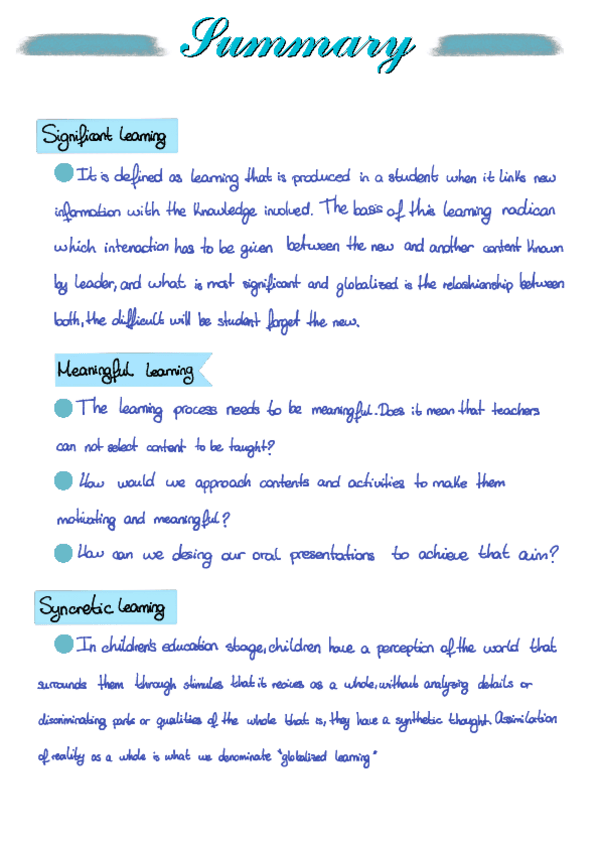 Summary
Significant learning
It is defined as learning that is produced in a student when it links new
information with the knowledge involved. The basis of this learning radican
which interaction has to be given between the new and another content known
by leader, and what is most significant and globalized is the reloshianship between
both, the difficult will be student forget the new.
Meaningful learning
The learning process needs to be meaningful. Does it mean that teachers
can not select content to be taught?
How would we approach contents and activities to make them
motivating and meaningful?
How can we desing our oral presentations to achieve that aim?
Syncretic learning
In children's education stage, children have a perception of the world that
surrounds them through stimules that it recives as a whole, without analyzing details or
discriminating parts or qualities of the whole that is, they have a synthetic thought. Assimilation
of reality as a whole is what we denominate "globalized learning"